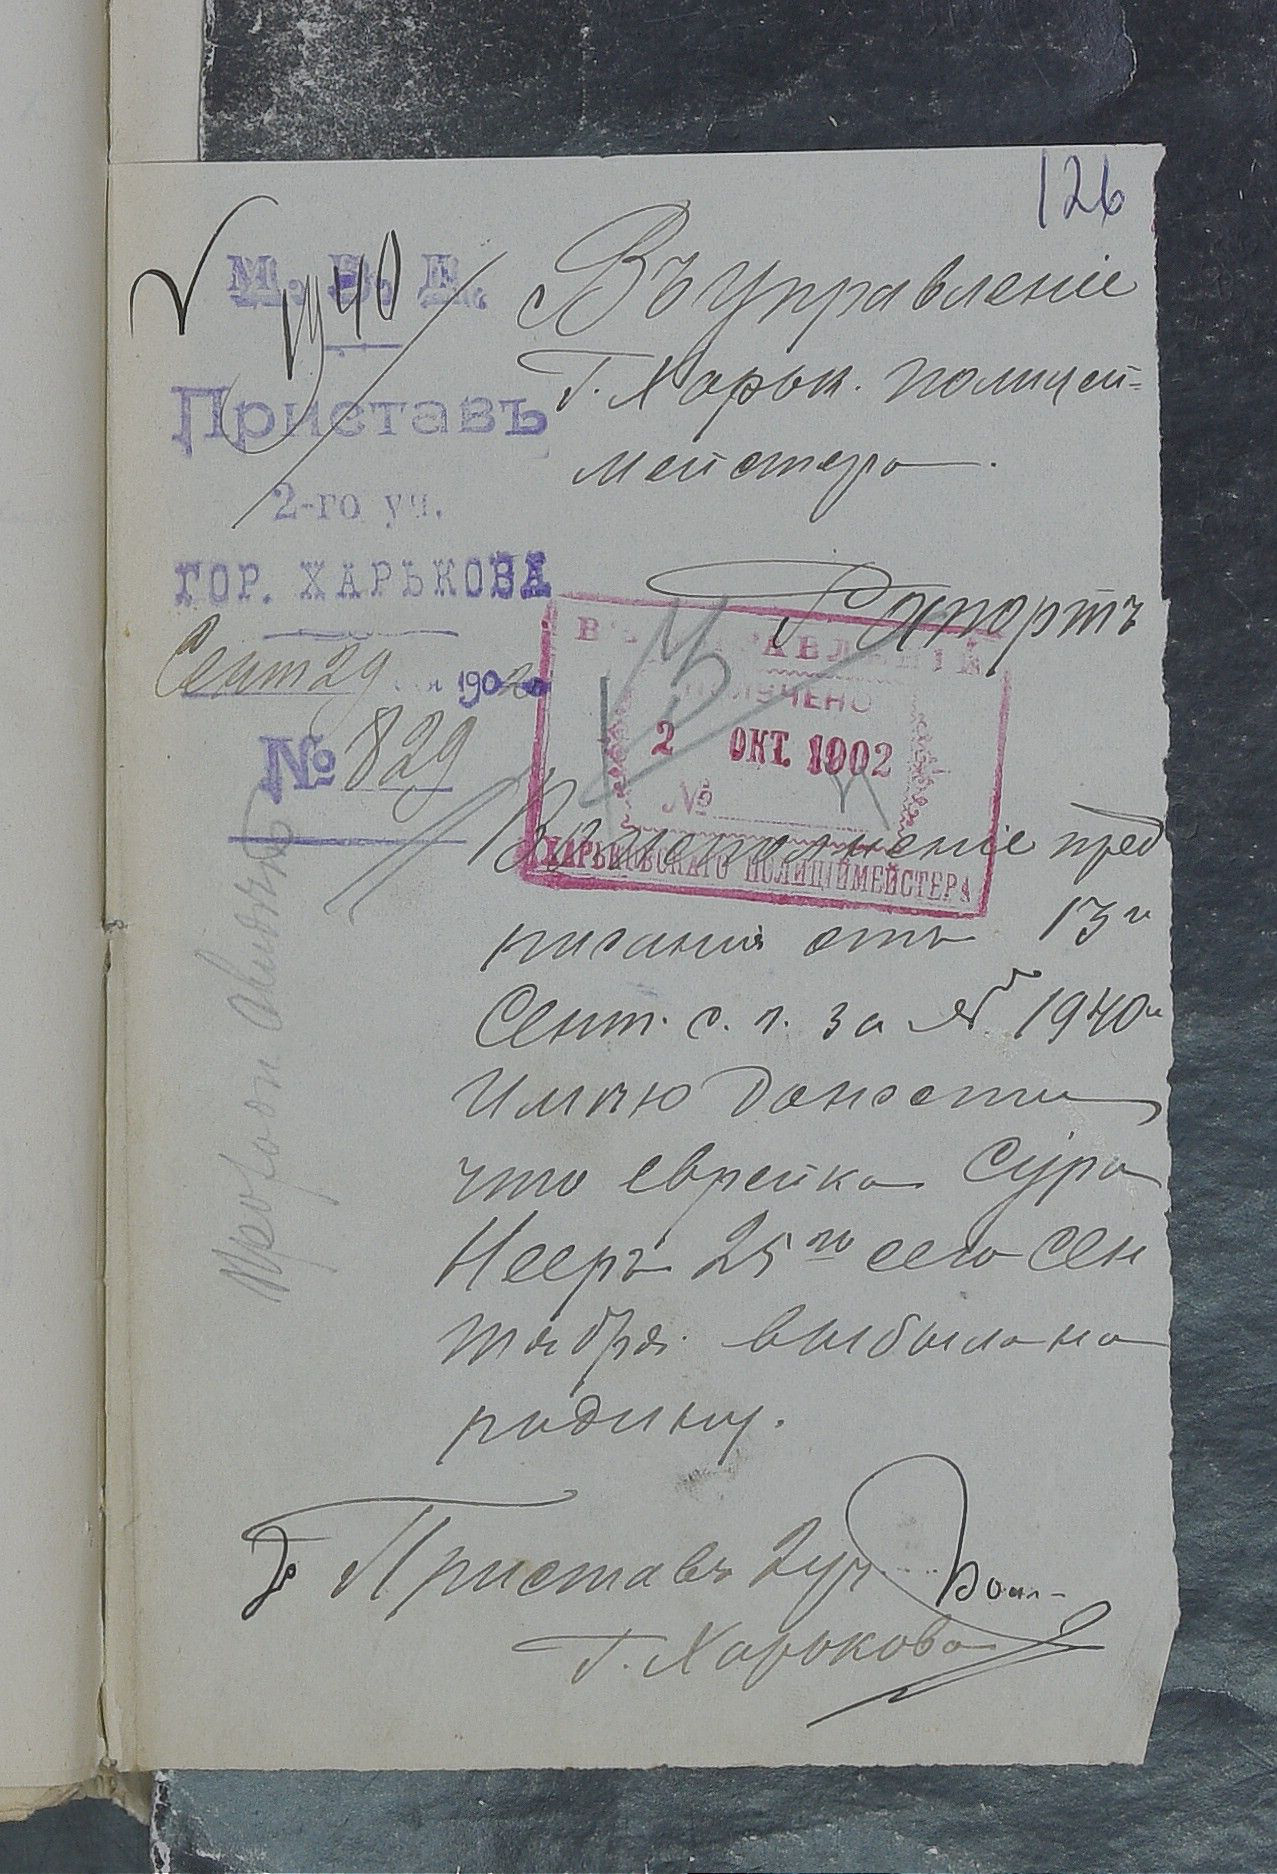 126
М. В. Д.
1940
Приставъ
2-го уч.
ГОР. ХАРЬКОВА
Сент 29 дня 1902
№ 829
Въ Управленіе
Г. Харьк. полицей-
мейстера.
Рапортъ
ВЪ УПРАВЛЕНІИ
ПОЛУЧЕНО
2 ОКТ. 1902
№
ХАРЬКОВСКАГО ПОЛИЦІЙМЕЙСТЕРА
Во исполненіе пред
писанія отъ 13го
Сент. с. г. за № 1940м
Имѣю донести
что еврейка Сура
Нееръ 25го сего Сен
тября выбыла на
родину.
Приставъ 2 уч
Г. Харькова